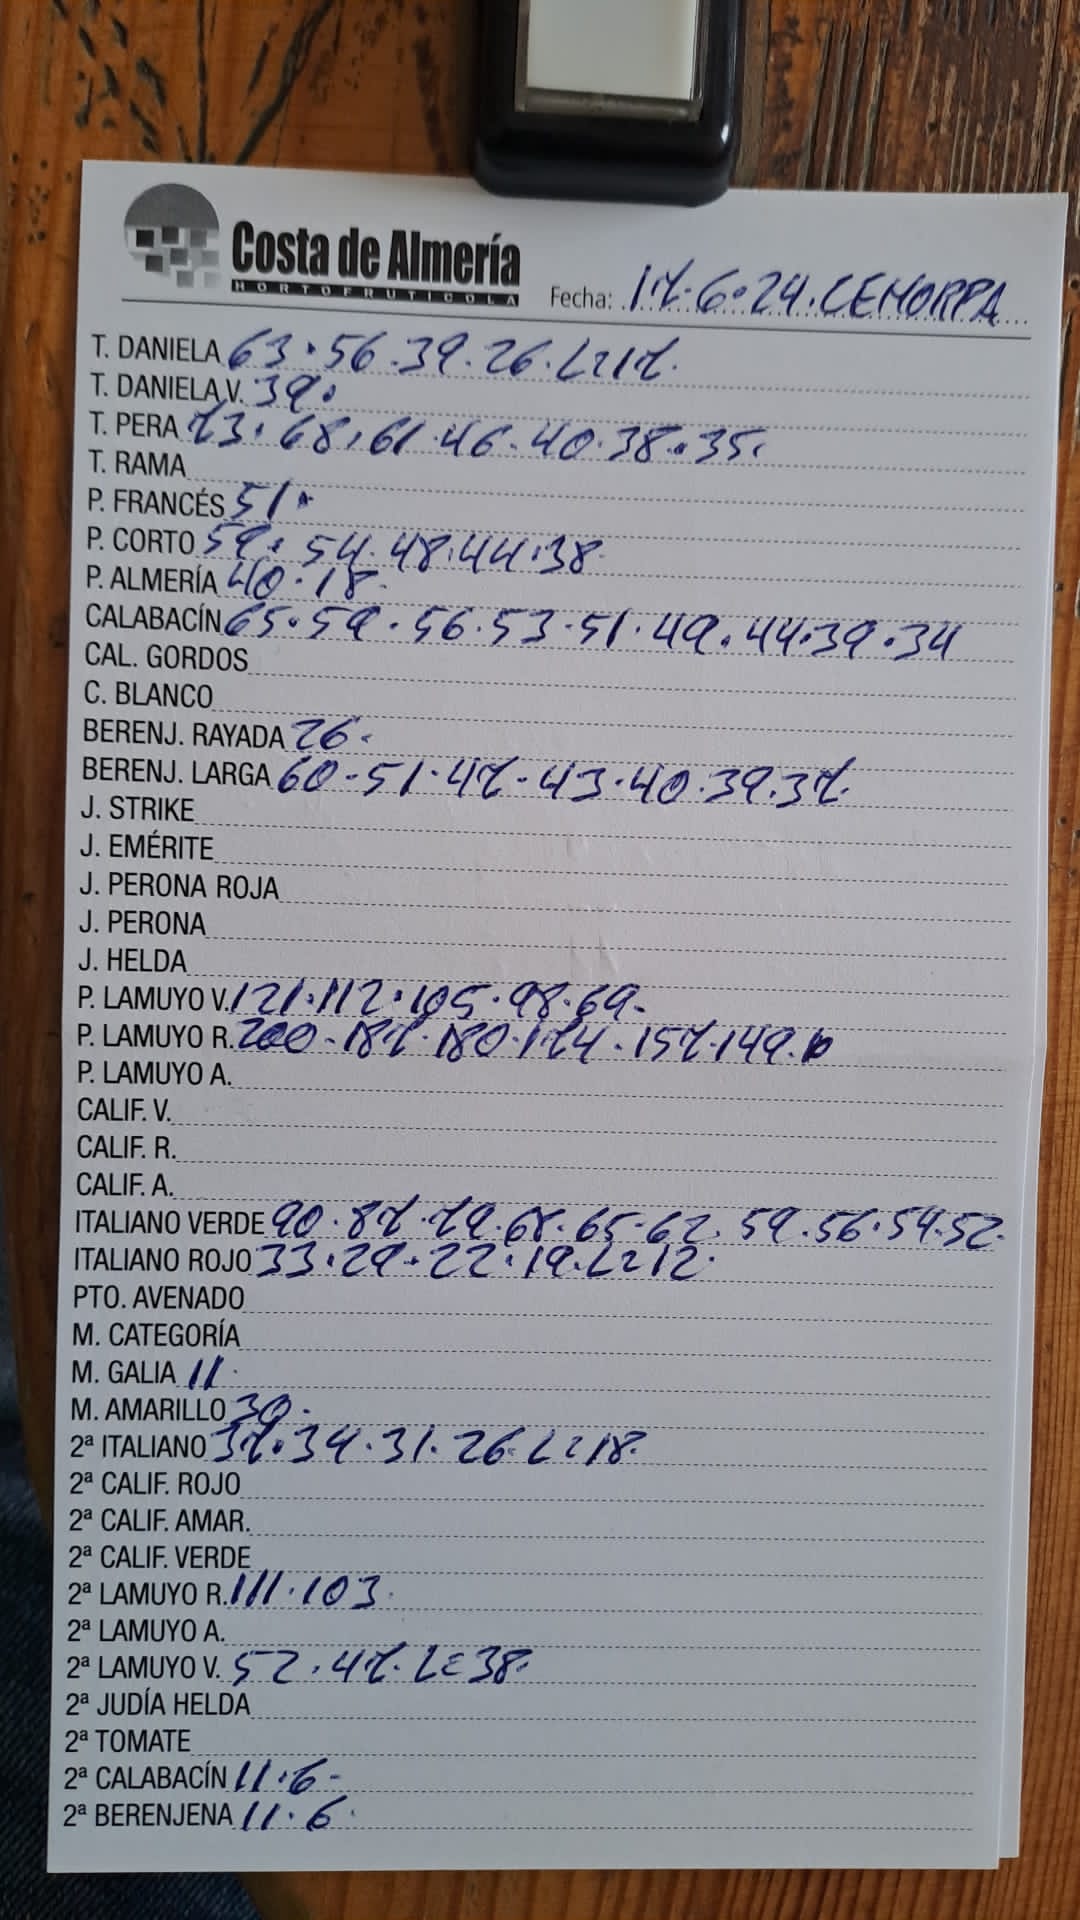 Costa de Almería
HORTOFRUTICOLA
Fecha: 17.6.24. CEHORPA
T. DANIELA 63.56.39.26. L217.
T. DANIELA V. 39.
T. PERA 73.68.61.46.40.38.35.
T. RAMA
P. FRANCÉS 51.
P. CORTO 59.54.48.44.38
P. ALMERÍA 40.18.
CALABACÍN 65.59.56.53.51.49.44.39.34
CAL. GORDOS
C. BLANCO
BERENJ. RAYADA 26.
BERENJ. LARGA 60.51.47.43.40.39.37.
J. STRIKE
J. EMÉRITE
J. PERONA ROJA
J. PERONA
J. HELDA
P. LAMUYO V. 121.112.105.98.69.
P. LAMUYO R. 200.187.180.174.157.149.
P. LAMUYO A.
CALIF. V.
CALIF. R.
CALIF. A.
ITALIANO VERDE 90.87.79.68.65.62.59.56.54.52.
ITALIANO ROJO 33.29.22.19. L212.
PTO. AVENADO
M. CATEGORÍA
M. GALIA 11.
M. AMARILLO 30.
2ª ITALIANO 37.34.31.26. L218.
2ª CALIF. ROJO
2ª CALIF. AMAR.
2ª CALIF. VERDE
2ª LAMUYO R. 111.103.
2ª LAMUYO A.
2ª LAMUYO V. 52.47. L238.
2ª JUDÍA HELDA
2ª TOMATE
2ª CALABACÍN 11.6-
2ª BERENJENA 11.6.